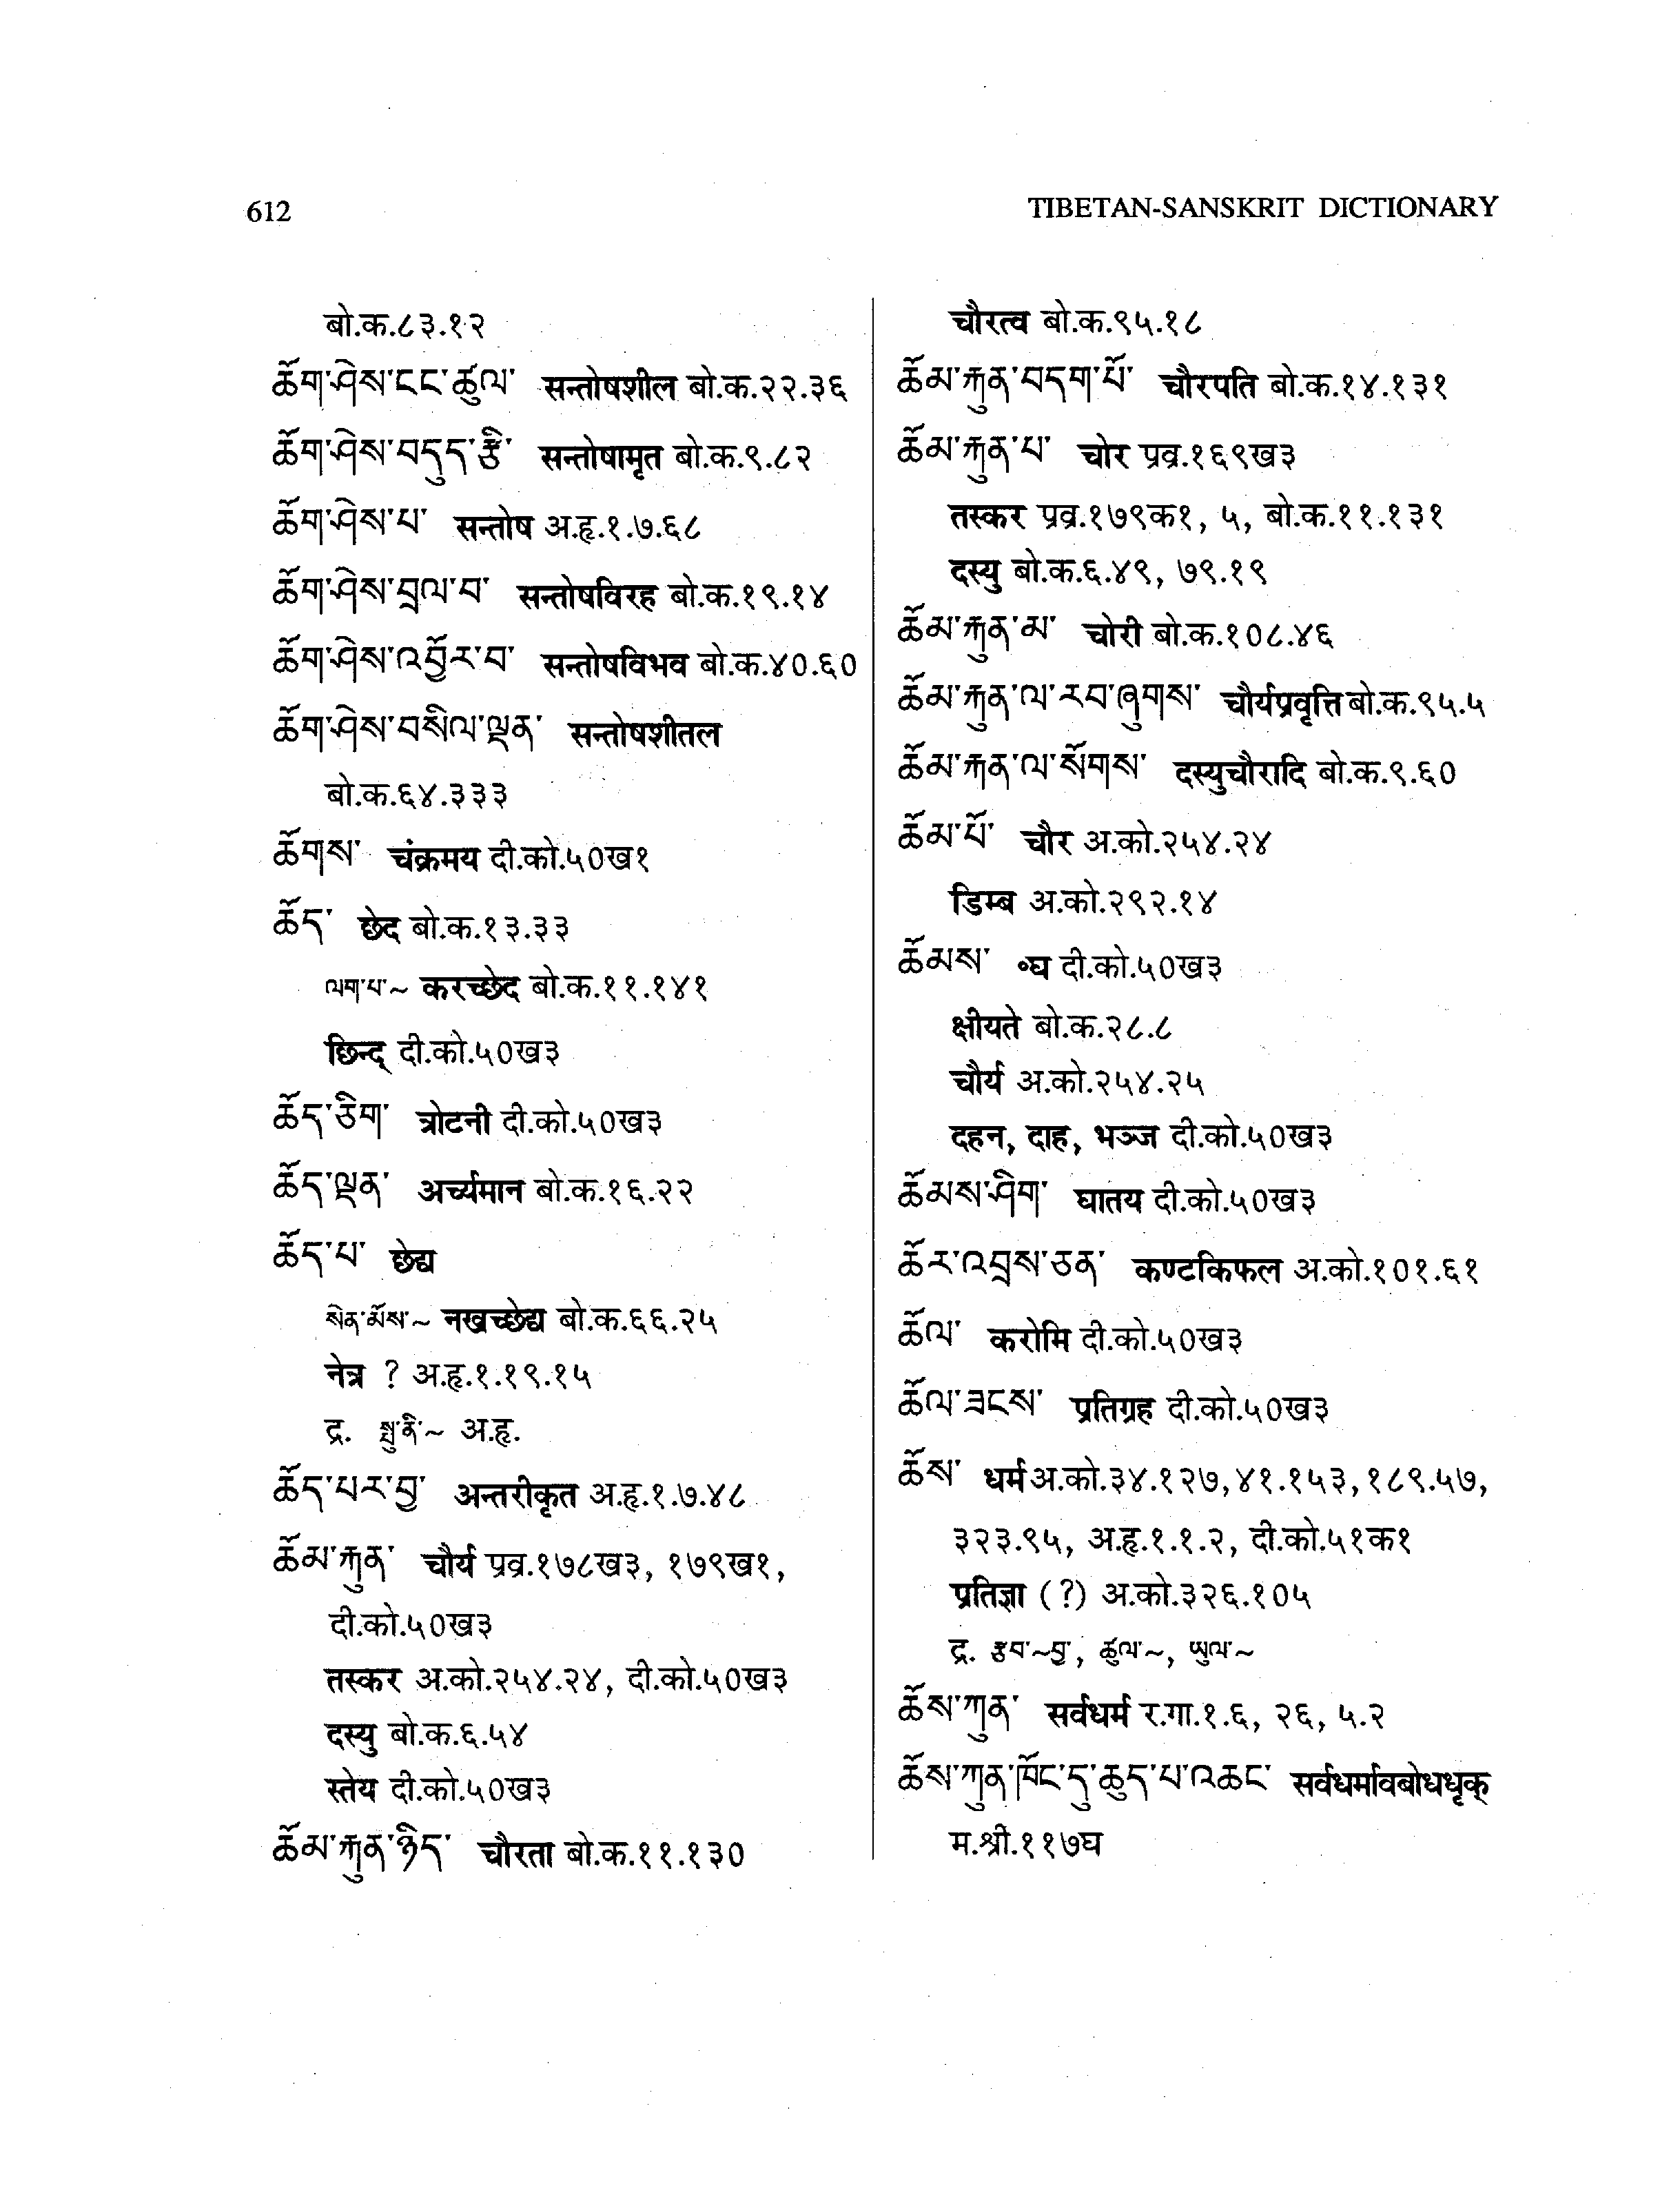 612
TIBETAN-SANSKRIT DICTIONARY
बो.क.८३.१२
ཆོག་ཤེས་ངང་ཚུལ་ सन्तोषशील बो.क.२२.३६
ཆོག་ཤེས་བདུད་རྩི་ सन्तोषामृत बो.क.९.८२
ཆོག་ཤེས་པ་ सन्तोष अ.हृ.१.७.६८
ཆོག་ཤེས་བྲལ་བ་ सन्तोषविरह बो.क.१९.१४
ཆོག་ཤེས་འབྱོར་བ་ सन्तोषविभव बो.क.४०.६०
ཆོག་ཤེས་བསིལ་ལྡན་ सन्तोषशीतल
बो.क.६४.३३३
ཆོགས་ चंक्रमय दी.को.५०ख१
ཆོད་ छेद बो.क.१३.३३
ལག་པ་~ करच्छेद बो.क.११.१४१
छिन्द् दी.को.५०ख३
ཆོད་ཅིག་ त्रोटनी दी.को.५०ख३
ཆོད་ལྡན་ अर्च्यमान बो.क.१६.२२
ཆོད་པ་ छेद्य
སེན་མོས་~ नखच्छेद्य बो.क.६६.२५
नेत्र ? अ.हृ.१.१९.१५
द्र. སྤུ་ནི་~ अ.हृ.
ཆོད་པར་བྱ་ अन्तरीकृत अ.हृ.१.७.४८
ཆོམ་རྐུན་ चौर्य प्रव्र.१७८ख३, १७९ख१,
दी.को.५०ख३
तस्कर अ.को.२५४.२४, दी.को.५०ख३
दस्यु बो.क.६.५४
स्तेय दी.को.५०ख३
ཆོམ་རྐུན་ཉིད་ चौरता बो.क.११.१३०
चौरत्व बो.क.९५.१८
ཆོམ་རྐུན་བདག་པོ་ चौरपति बो.क.१४.१३१
ཆོམ་རྐུན་པ་ चोर प्रव्र.१६९ख३
तस्कर प्रव्र.१७९क१, ५, बो.क.११.१३१
दस्यु बो.क.६.४९, ७९.१९
ཆོམ་རྐུན་མ་ चोरी बो.क.१०८.४६
ཆོམ་རྐུན་ལ་རབ་ཞུགས་ चौर्यप्रवृत्ति बो.क.९५.५
ཆོམ་རྐན་ལ་སོགས་ दस्युचौरादि बो.क.९.६०
ཆོམ་པོ་ चौर अ.को.२५४.२४
डिम्ब अ.को.२९२.१४
ཆོམས་ ॰घ दी.को.५०ख३
क्षीयते बो.क.२८.८
चौर्य अ.को.२५४.२५
दहन, दाह, भञ्ज दी.को.५०ख३
ཆོམས་ཤིག་ घातय दी.को.५०ख३
ཆོར་འབྲས་ཅན་ कण्टकिफल अ.को.१०१.६१
ཆོལ་ करोमि दी.को.५०ख३
ཆོལ་ཟངས་ प्रतिग्रह दी.को.५०ख३
ཆོས་ धर्म अ.को.३४.१२७,४१.१५३,१८९.५७,
३२३.९५, अ.हृ.१.१.२, दी.को.५१क१
प्रतिज्ञा (?) अ.को.३२६.१०५
द्र. རྩབ་~བྱ་, ཚུལ་~, ཡུལ་~
ཆོས་ཀུན་ सर्वधर्म र.गा.१.६, २६, ५.२
ཆོས་ཀུན་ཁོང་དུ་ཆུད་པ་འཆང་ सर्वधर्मावबोधधृक्
म.श्री.११७घ